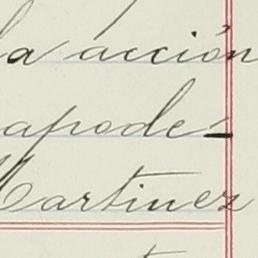 la acción
apode-
Martinez